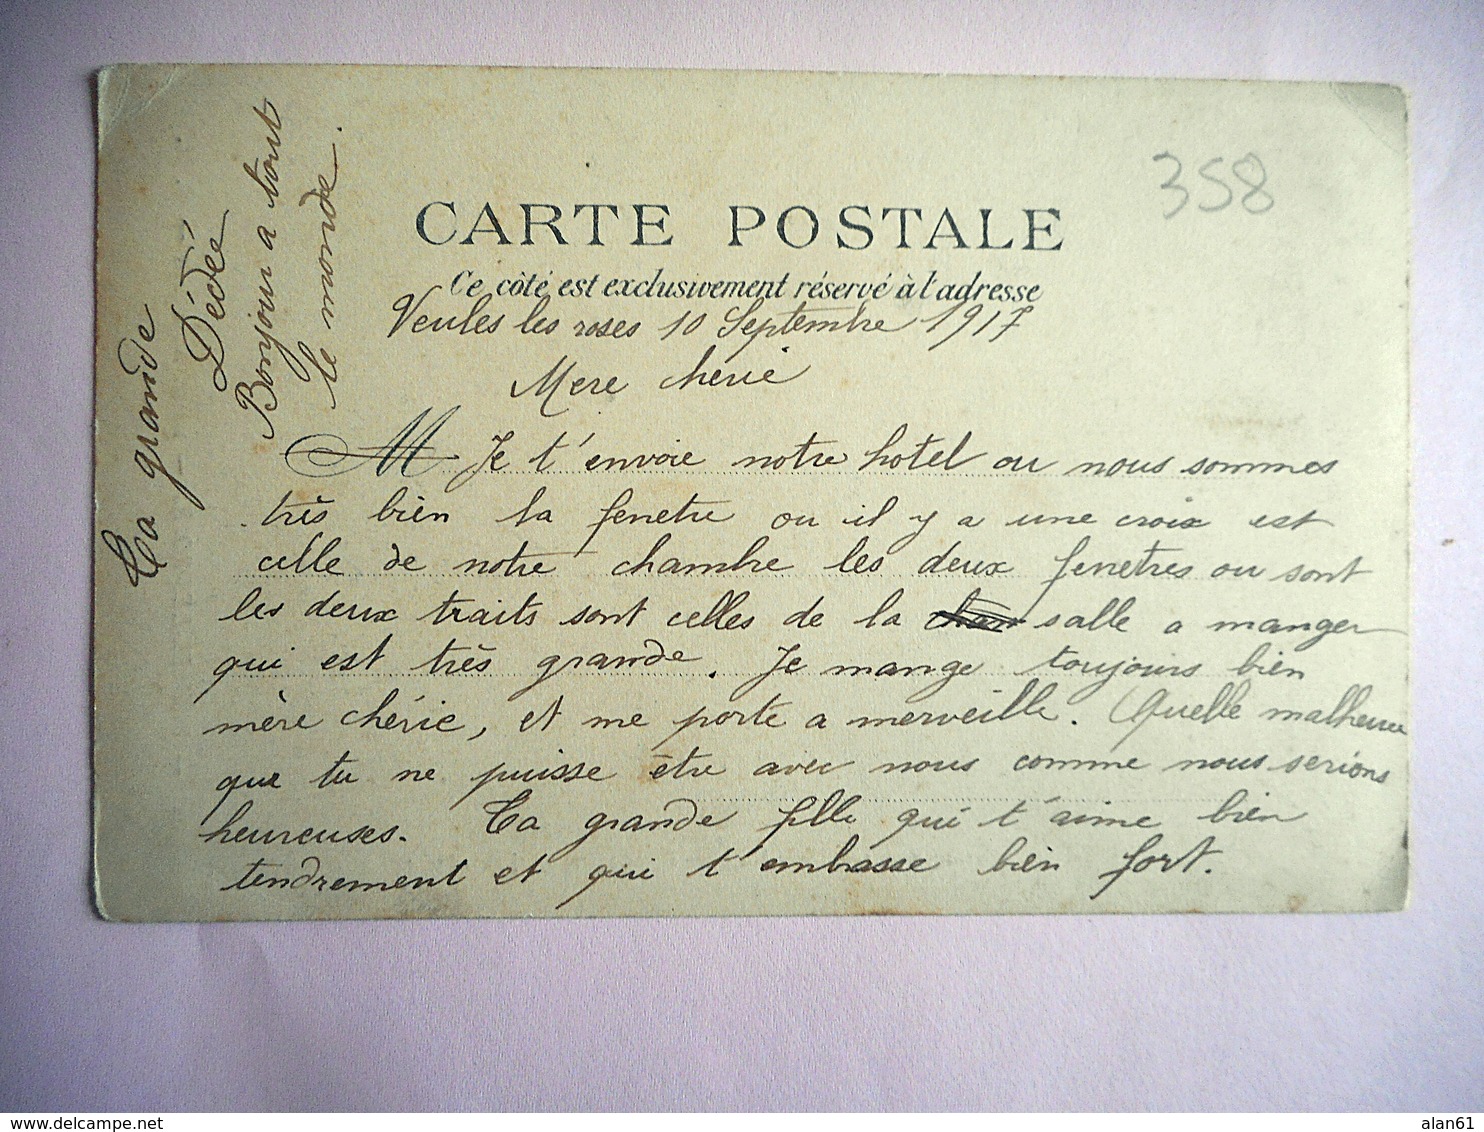 358
CARTE POSTALE
Ce côté est exclusivement réservé à l'adresse
Veules les roses 10 Septembre 1917
Mere cherie
M Je t'envoie notre hotel ou nous sommes
très bien la fenetre ou il y a une croix est
celle de notre chambre les deux fenetres ou sont
les deux traits sont celles de la salle a manger
qui est très grande. Je mange toujours bien
mère chérie, et me porte a merveille. Quelle malheur
que tu ne puisse être avec nous comme nous serions
heureuses. Ta grande fille qui t'aime bien
tendrement et qui t'embrasse bien fort.
Ta grande
Dédée
Bonjour a tout
le monde.
alan61